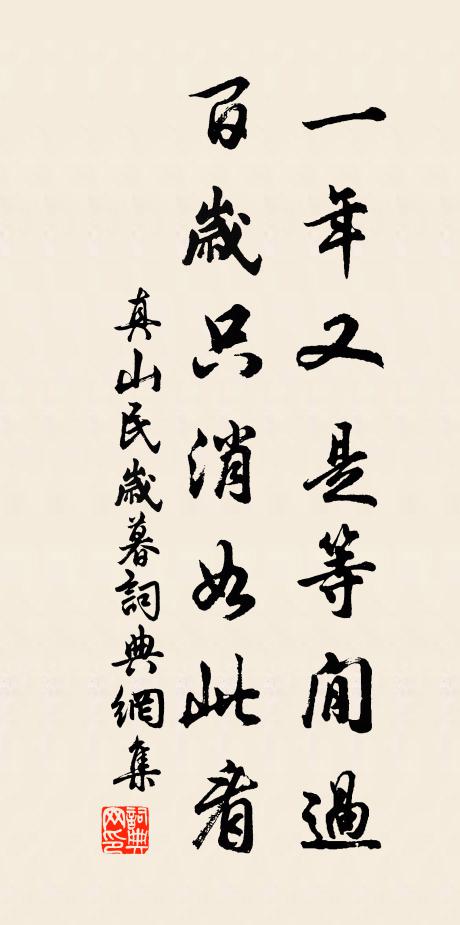 一年又是等閒過
百歲只消如此看
真山民歲暮詞典網集
詞典
网印